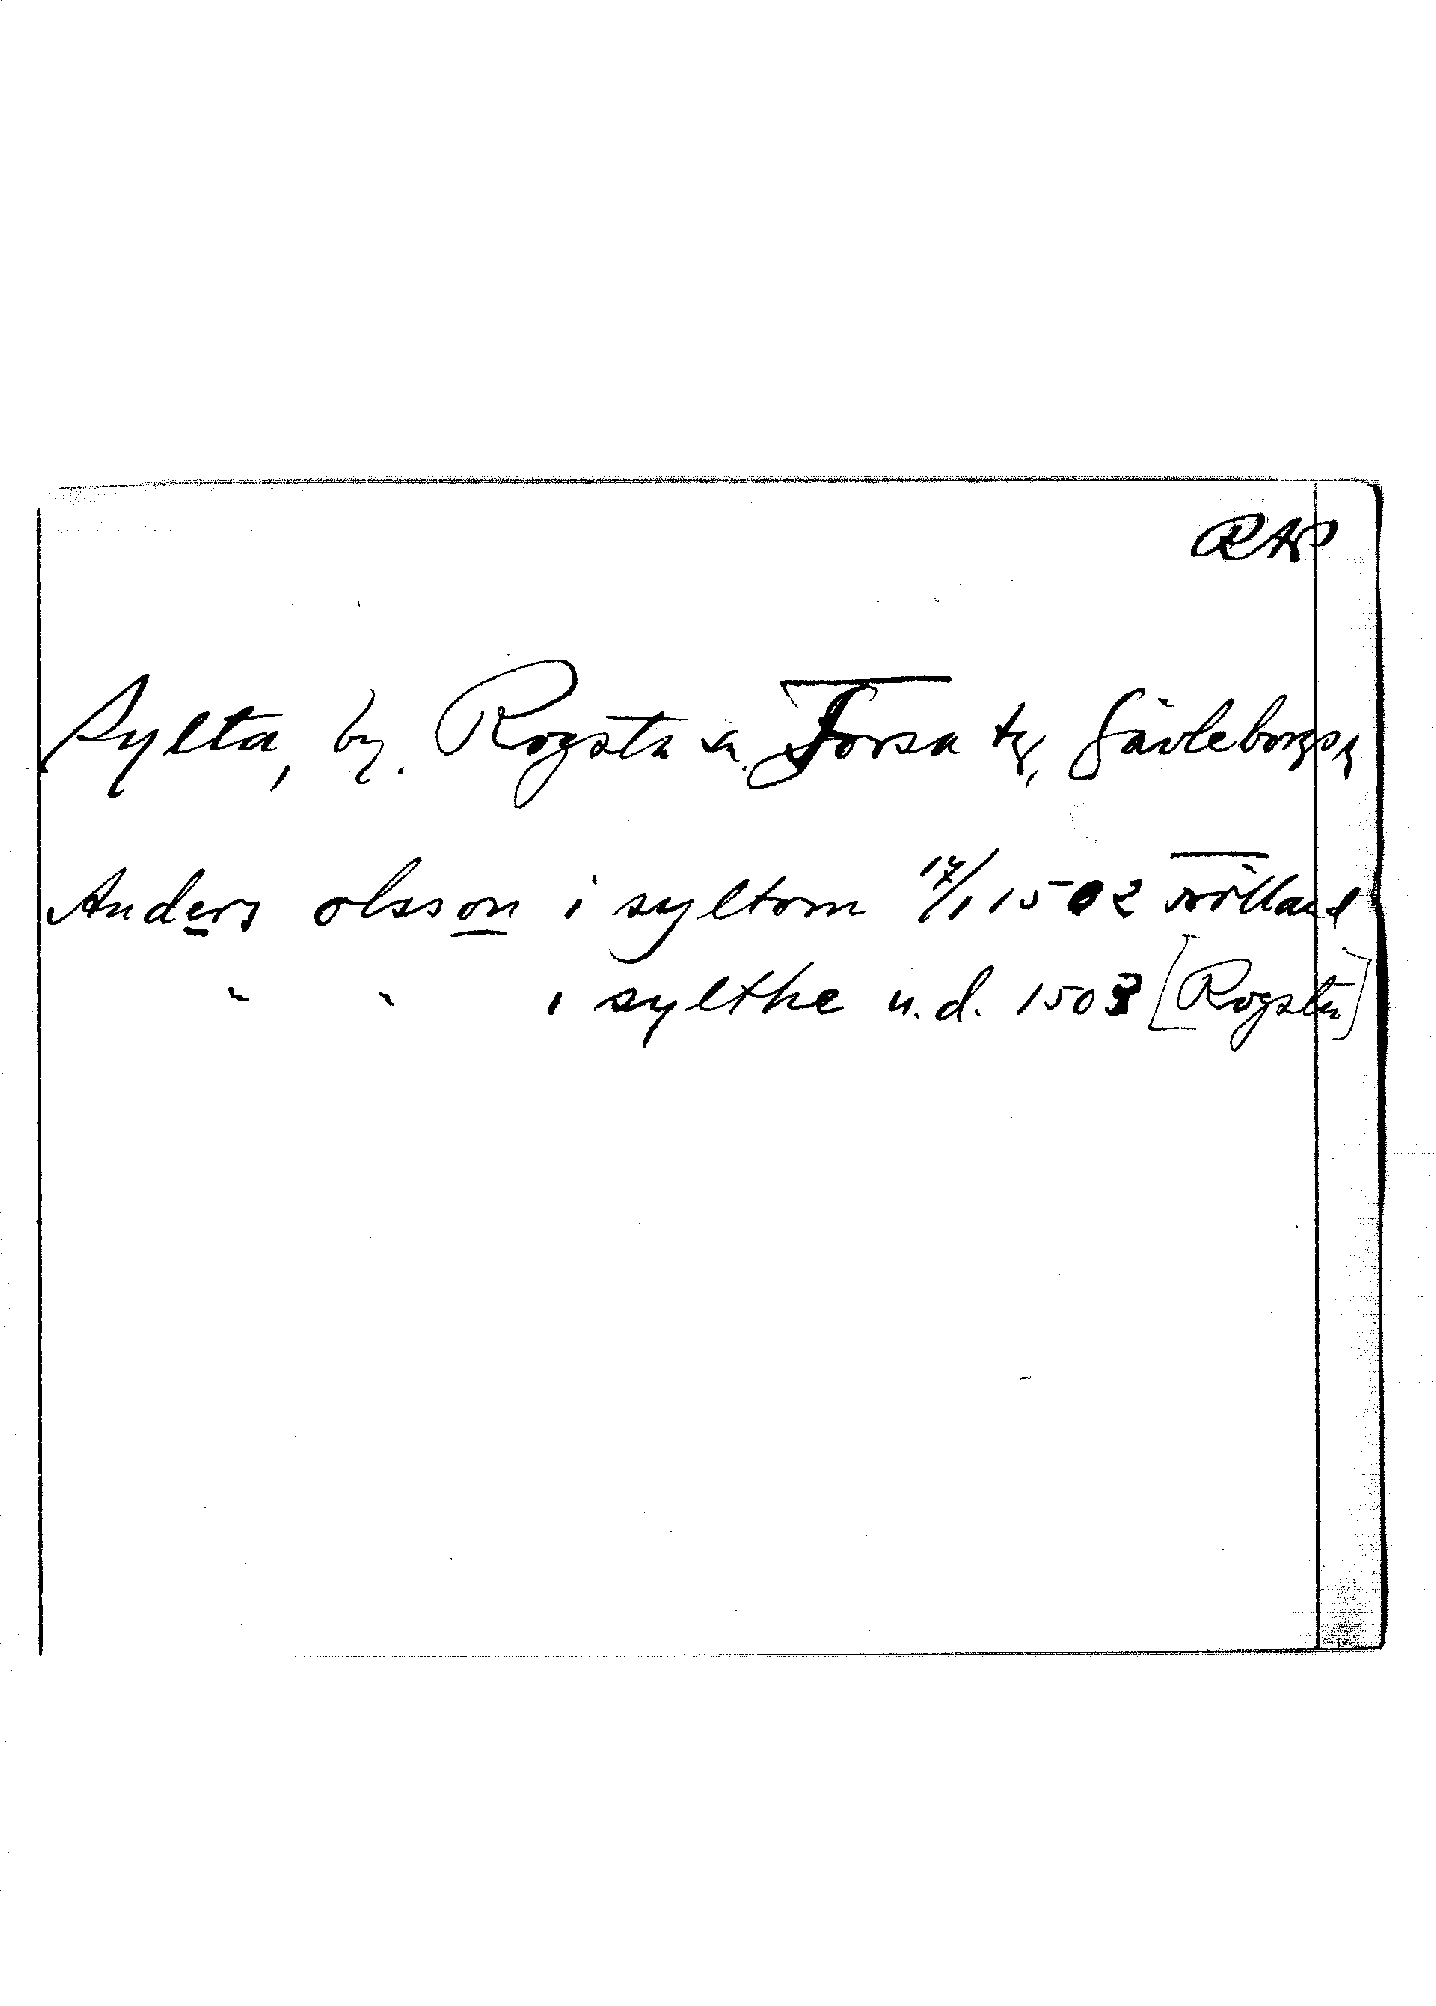 RAP
Sylta, by. Rogsta sn. Forsa tg, Gävleborgs
Anders olsson i syltom 17/1 1502 Trölland
" " i sylthe u.d. 1503 [Rogsta]